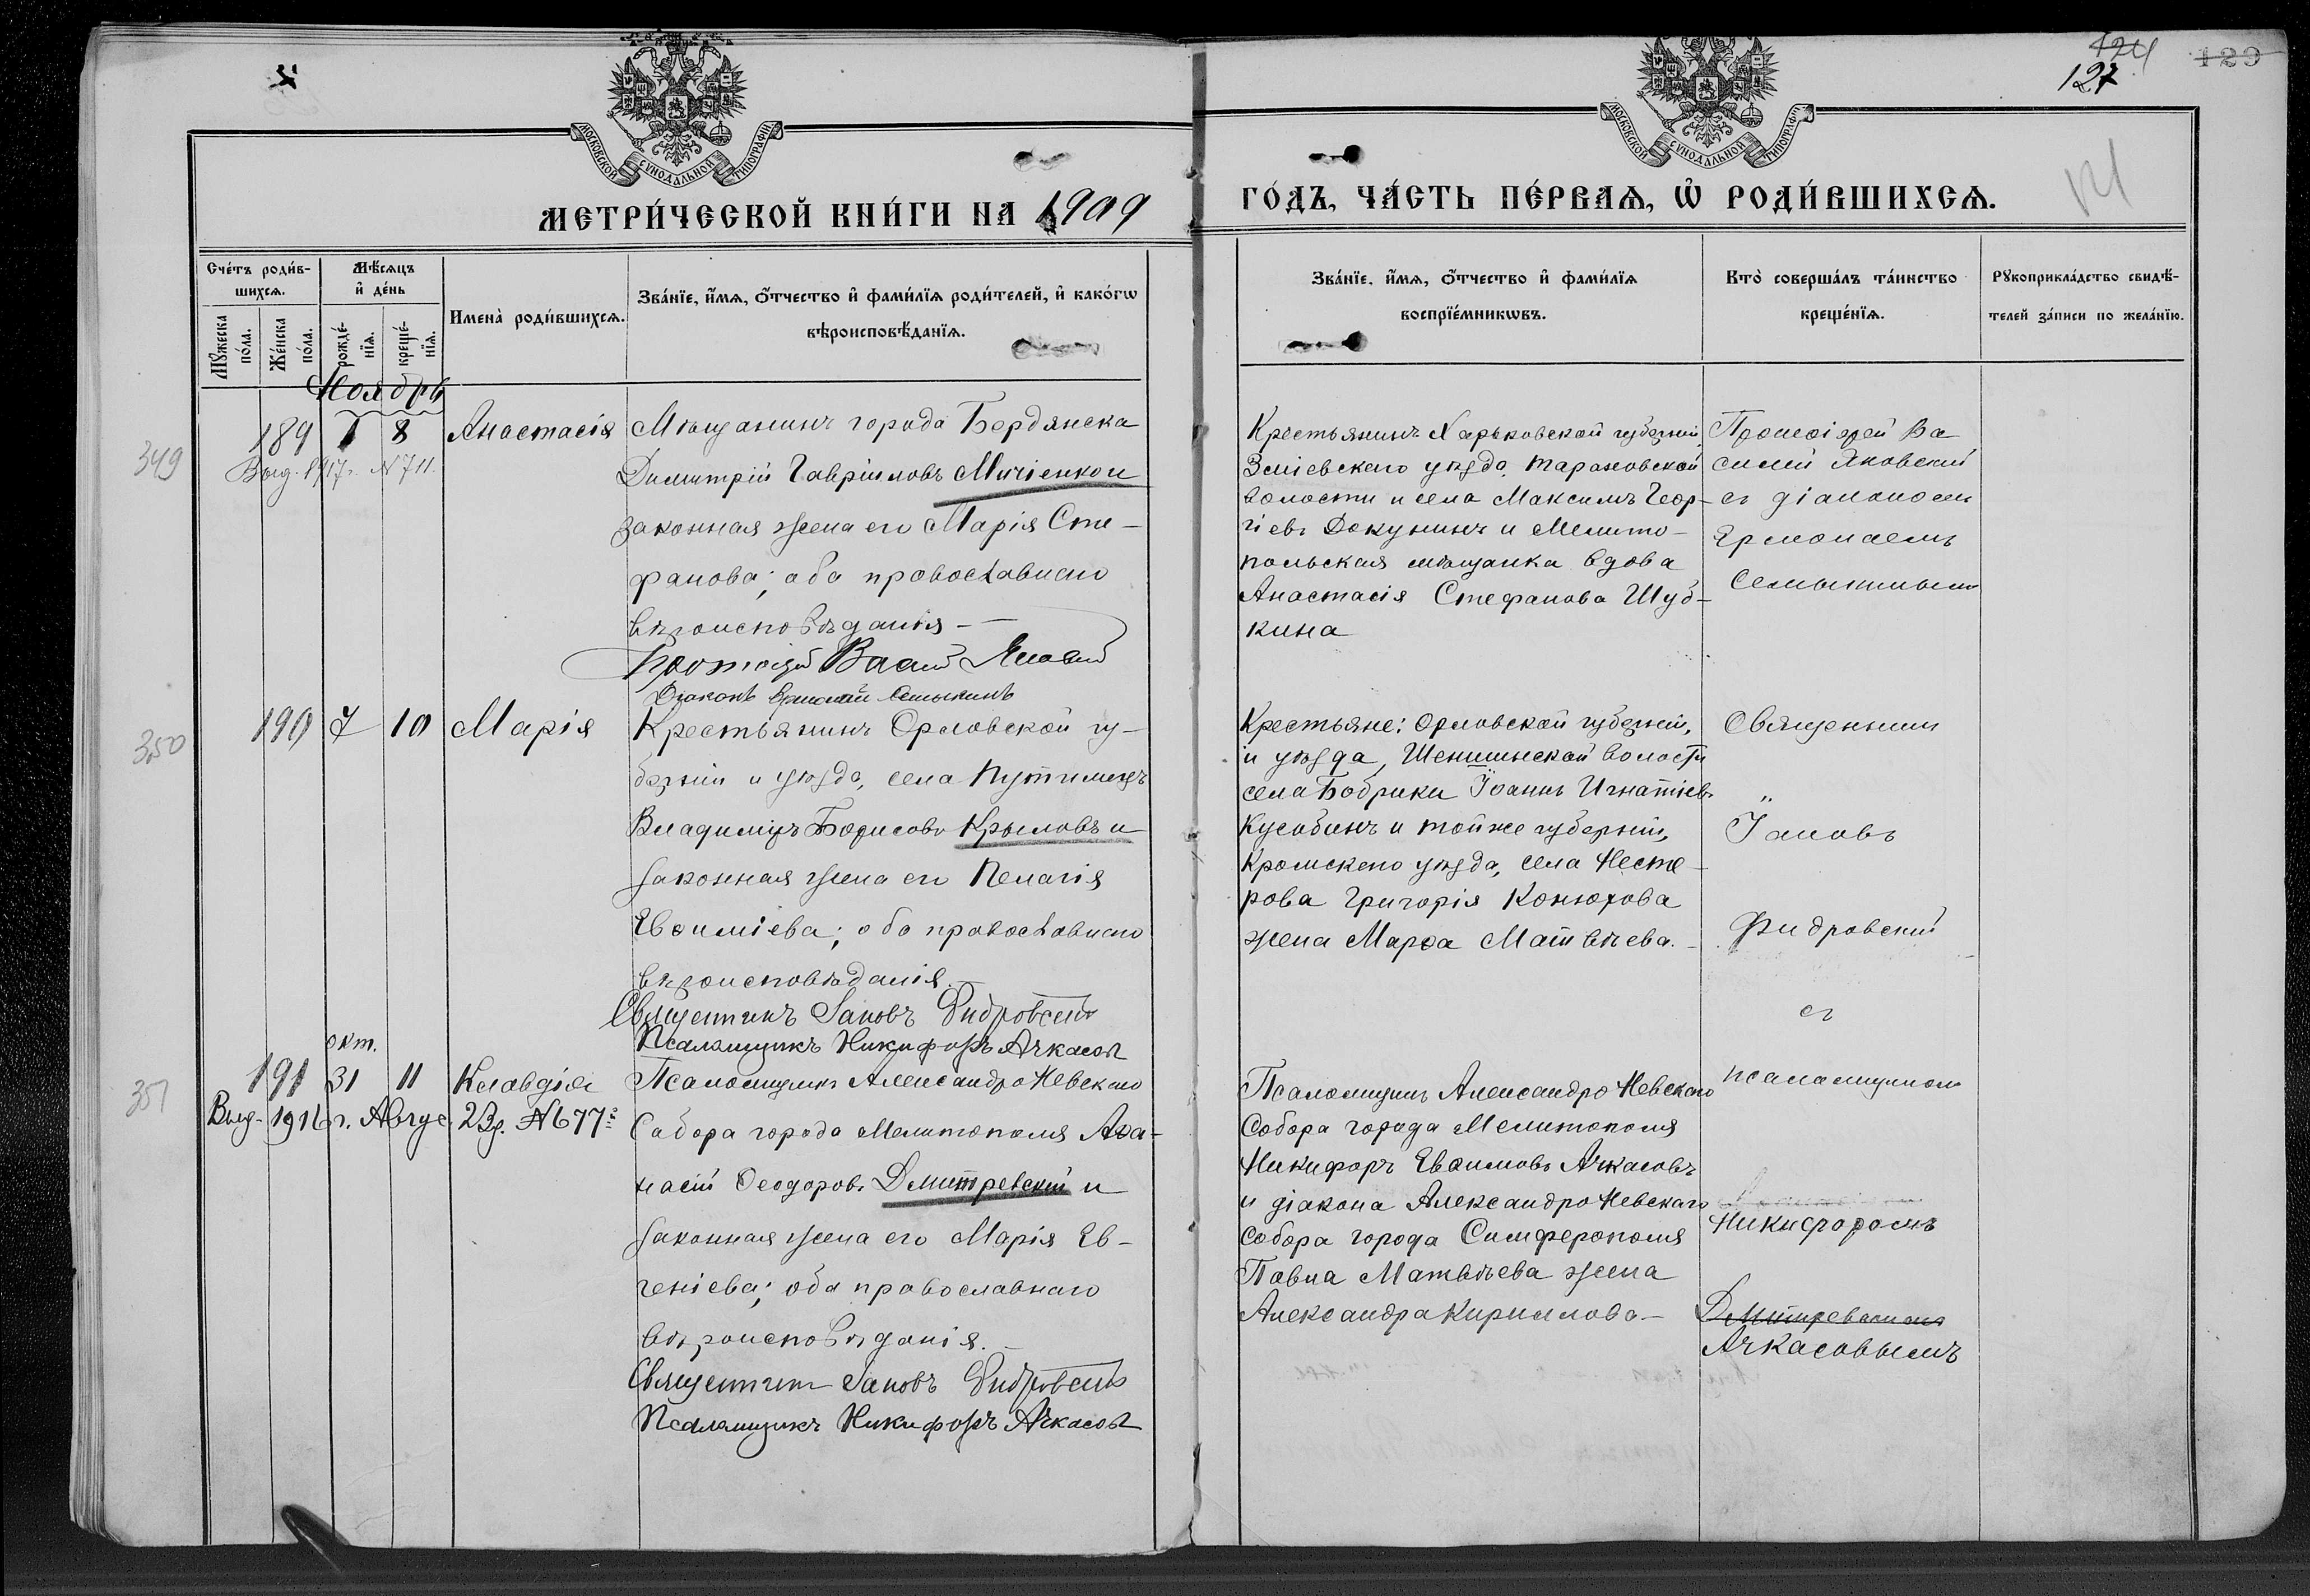 124
127
129
МОСКОВСКОЙ СѴНОДАЛЬНОЙ ТИПОГРАФІИ
МОСКОВСКОЙ СѴНОДАЛЬНОЙ ТИПОГРАФІИ
МЕТРИ́ЧЕСКОЙ КНИ́ГИ НА 1909
ГО́ДЪ, ЧА́СТЬ ПЕ́РВАѦ, Ѡ РОДИ́ВШИХСѦ.
Сче́тъ роди́в-
шихсѧ.
Мꙋ́жеска по́ла.
Же́нска по́ла.
Мѣ́сѧцъ
и де́нь
рожде́-
нїѧ.
креще́-
нїѧ.
Имена̀ роди́вшихсѧ.
Зва́нїе, и́мѧ, ѻ́тчество и фами́лїѧ роди́телей, и како́гѡ
вѣроисповѣ́данїѧ.
Зва́нїе, и́мѧ, ѻ́тчество и фами́лїѧ
воспрїе́мникѡвъ.
Кто̀ соверша́лъ та́инство
креще́нїѧ.
Рꙋкоприкла́дство свидѣ́-
телей за́писи по жела́нїю.
Ноябрь
349
189 1 8 Анастасія
Выд. 1917 г. N 711.
Мѣщанинъ города Бердянска
Димитрій Гавріиловъ и
законная жена его Марія Сте-
фанова; оба православнаго
вѣроисповѣданія —
Протоіерей Василій Яновскій
Діаконъ Ермолай Семыкинъ
Крестьянинъ Харьковской губерніи,
Зміевскаго уѣзда, Тарановской
волости и села Максимъ Геор-
гіевъ Докунинъ и Мелито-
польская мѣщанка вдова
Анастасія Стефанова Шуб-
кина
Протоіерей Ва
силій Яновскій
съ діакономъ
Ермолаемъ
Семыкинымъ
350
190 7 10 Марія
Крестьянинъ Орловской гу-
берніи и уѣзда, села Путимецъ
Владиміръ Борисовъ Крыловъ и
законная жена его Пелагія
Евѳиміева; оба православнаго
вѣроисповѣданія.
Священникъ Іаковъ Фидровскій
Псаломщикъ Никифоръ Ачкасовъ
Крестьяне: Орловской губерніи,
и уѣзда, Шеншинской волости
села Бобрики Іоаннъ Игнатіевъ
Кусобинъ и той же губерніи,
Кромскаго уѣзда, села Несте-
рова Григорія Конюхова
жена Марѳа Матвѣева. —
Священникъ
Іаковъ
Фидровскій
съ
351
окт.
191 31 11 Клавдія
Выд. 1916 г. Авгус. 23 д. № 677
Псаломщикъ Александро Невскаго
Собора города Мелитополя Аѳа-
насій Ѳеодоровъ Дмитревскій и
законная жена его Марія Ев-
геніева; оба православнаго
вѣроисповѣданія. —
Священникъ Іаковъ Фидровскій
Псаломщикъ Никифоръ Ачкасовъ
Псаломщикъ Александро Невскаго
Собора города Мелитополя
Никифоръ Евѳимовъ Ачкасовъ
и діакона Александро Невскаго
Собора города Симферополя
Павла Матвѣева жена
Александра Кириллова —
псаломщикомъ
Никифоромъ
Дмитревскимъ
Ачкасовымъ